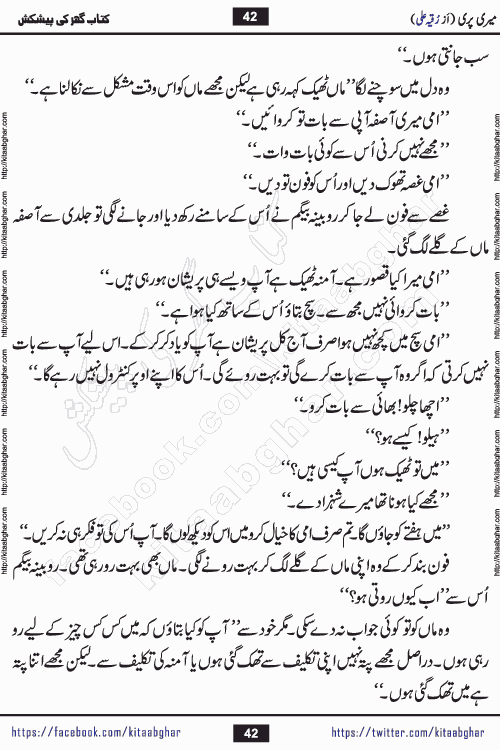 میری پری (از رقیہ علی)
42
کتاب گھر کی پیشکش
سب جانتی ہوں۔‘‘
وہ دل میں سوچنے لگا’’ماں ٹھیک کہہ رہی ہے لیکن مجھے ماں کو اس وقت مشکل سے نکالنا ہے۔‘‘
’’امی میری آصفہ آپی سے بات تو کروائیں۔‘‘
’’مجھے نہیں کرنی اُس سے کوئی بات وات۔‘‘
’’امی غصہ تھوک دیں اور اُس کو فون تو دیں۔‘‘
غصے سے فون لے جا کر روبینہ بیگم نے اُس کے سامنے رکھ دیا اور جانے لگی تو جلدی سے آصفہ
ماں کے گلے لگ گئی۔
’’امی میرا کیا قصور ہے۔ آمنہ ٹھیک ہے آپ ویسے ہی پریشان ہو رہی ہیں۔‘‘
’’بات کروائی نہیں مجھ سے۔ سچ بتاؤ اُس کے ساتھ کیا ہوا ہے۔‘‘
’’امی سچ میں کچھ نہیں ہوا صرف آج کل پریشان ہے آپ کو یاد کر کر کے۔ اس لیے آپ سے بات
نہیں کرتی کہ اگر وہ آپ سے بات کرے گی تو بہت روئے گی۔ اُس کا اپنے اوپر کنٹرول نہیں رہے گا۔‘‘
’’اچھا چلو! بھائی سے بات کرو۔‘‘
’’ہیلو! کیسے ہو؟‘‘
’’میں تو ٹھیک ہوں آپ کیسی ہیں؟‘‘
’’مجھے کیا ہونا تھا میرے شہزادے۔‘‘
’’میں ہفتے کو جاؤں گا۔ تم صرف امی کا خیال کرو میں اس کو دیکھ لوں گا۔ آپ اُس کی تو فکر ہی نہ کریں۔‘‘
فون بند کر کے وہ اپنی ماں کے گلے لگ کر بہت رونے لگی۔ ماں بھی بہت رو رہی تھی۔ روبینہ بیگم
اُس سے’’اب کیوں روتی ہو؟‘‘
وہ ماں کو تو کوئی جواب نہ دے سکی۔ مگر خود سے’’آپ کو کیا بتاؤں کہ میں کس کس چیز کے لیے رو
رہی ہوں۔ دراصل مجھے پتہ نہیں اپنی تکلیف سے تھک گئی ہوں یا آمنہ کی تکلیف سے۔ لیکن مجھے اتنا پتہ
ہے میں تھک گئی ہوں۔‘‘
https://facebook.com/kitaabghar
42
https://twitter.com/kitaabghar
http://kitaabghar.com
http://kitaabghar.com
http://kitaabghar.com
http://kitaabghar.com
http://kitaabghar.com
http://kitaabghar.com
http://kitaabghar.com
http://kitaabghar.com
http://kitaabghar.com
http://kitaabghar.com
http://kitaabghar.com
http://kitaabghar.com
کتاب گھر کی پیشکش
kitaabghar.com
facebook.com/kitaabghar